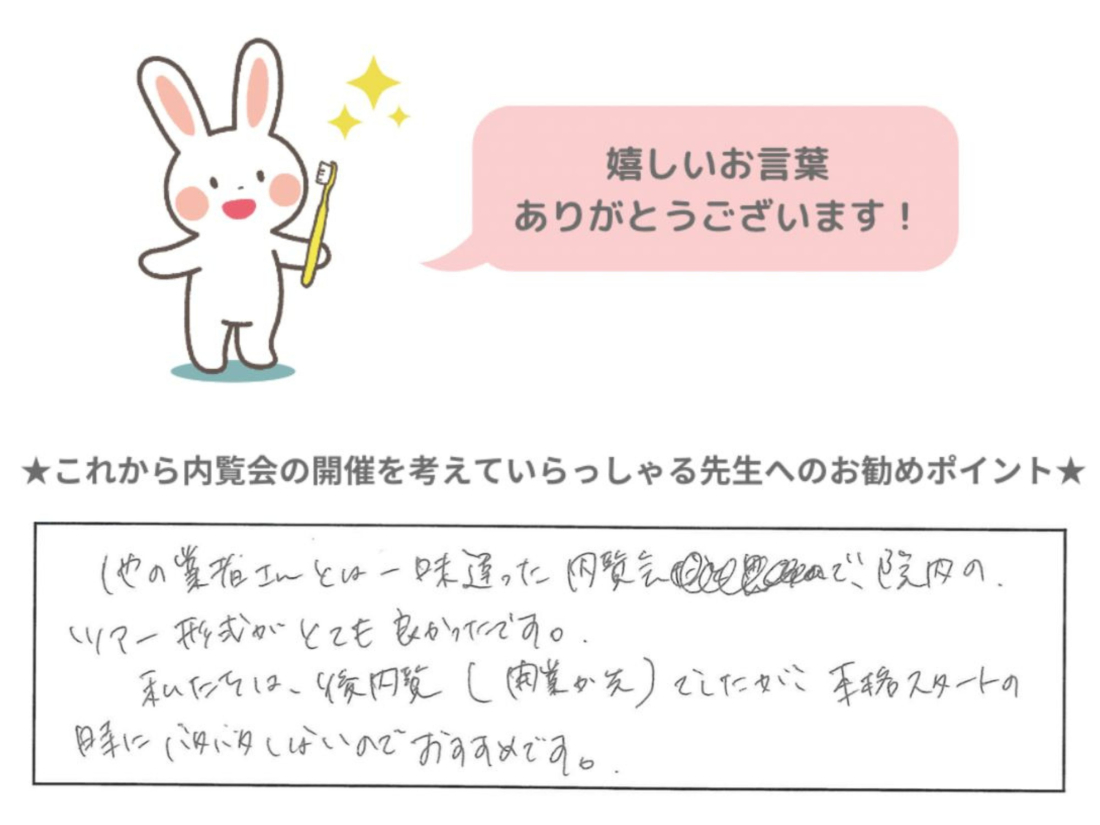 嬉しいお言葉
ありがとうございます！
★これから内覧会の開催を考えていらっしゃる先生へのお勧めポイント★
他の業者さんとは一味違った内覧会で、院内の
ツアー形式がとても良かったです。
私たちは、後内覧（開業が先）でしたが、本格スタートの
時にバタバタしないのでおすすめです。